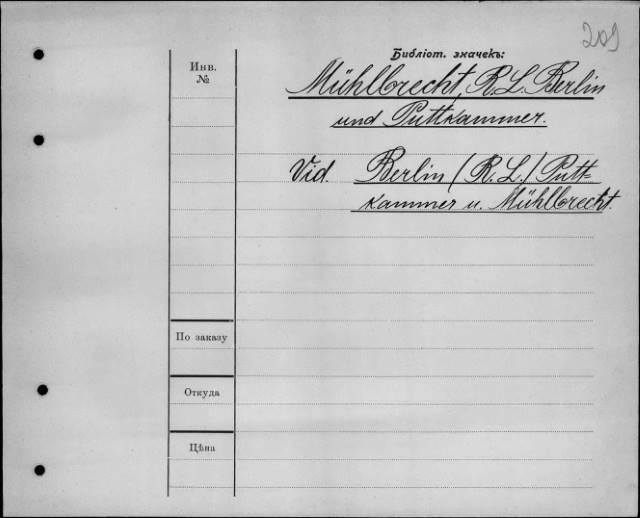 209
Библіот. значекъ:
Инв.
№
Mühlbrecht, R. L. Berlin
und Puttkammer.
Vid. Berlin (R. L.) Putt-
kammer u. Mühlbrecht.
По заказу
Откуда
Цѣна